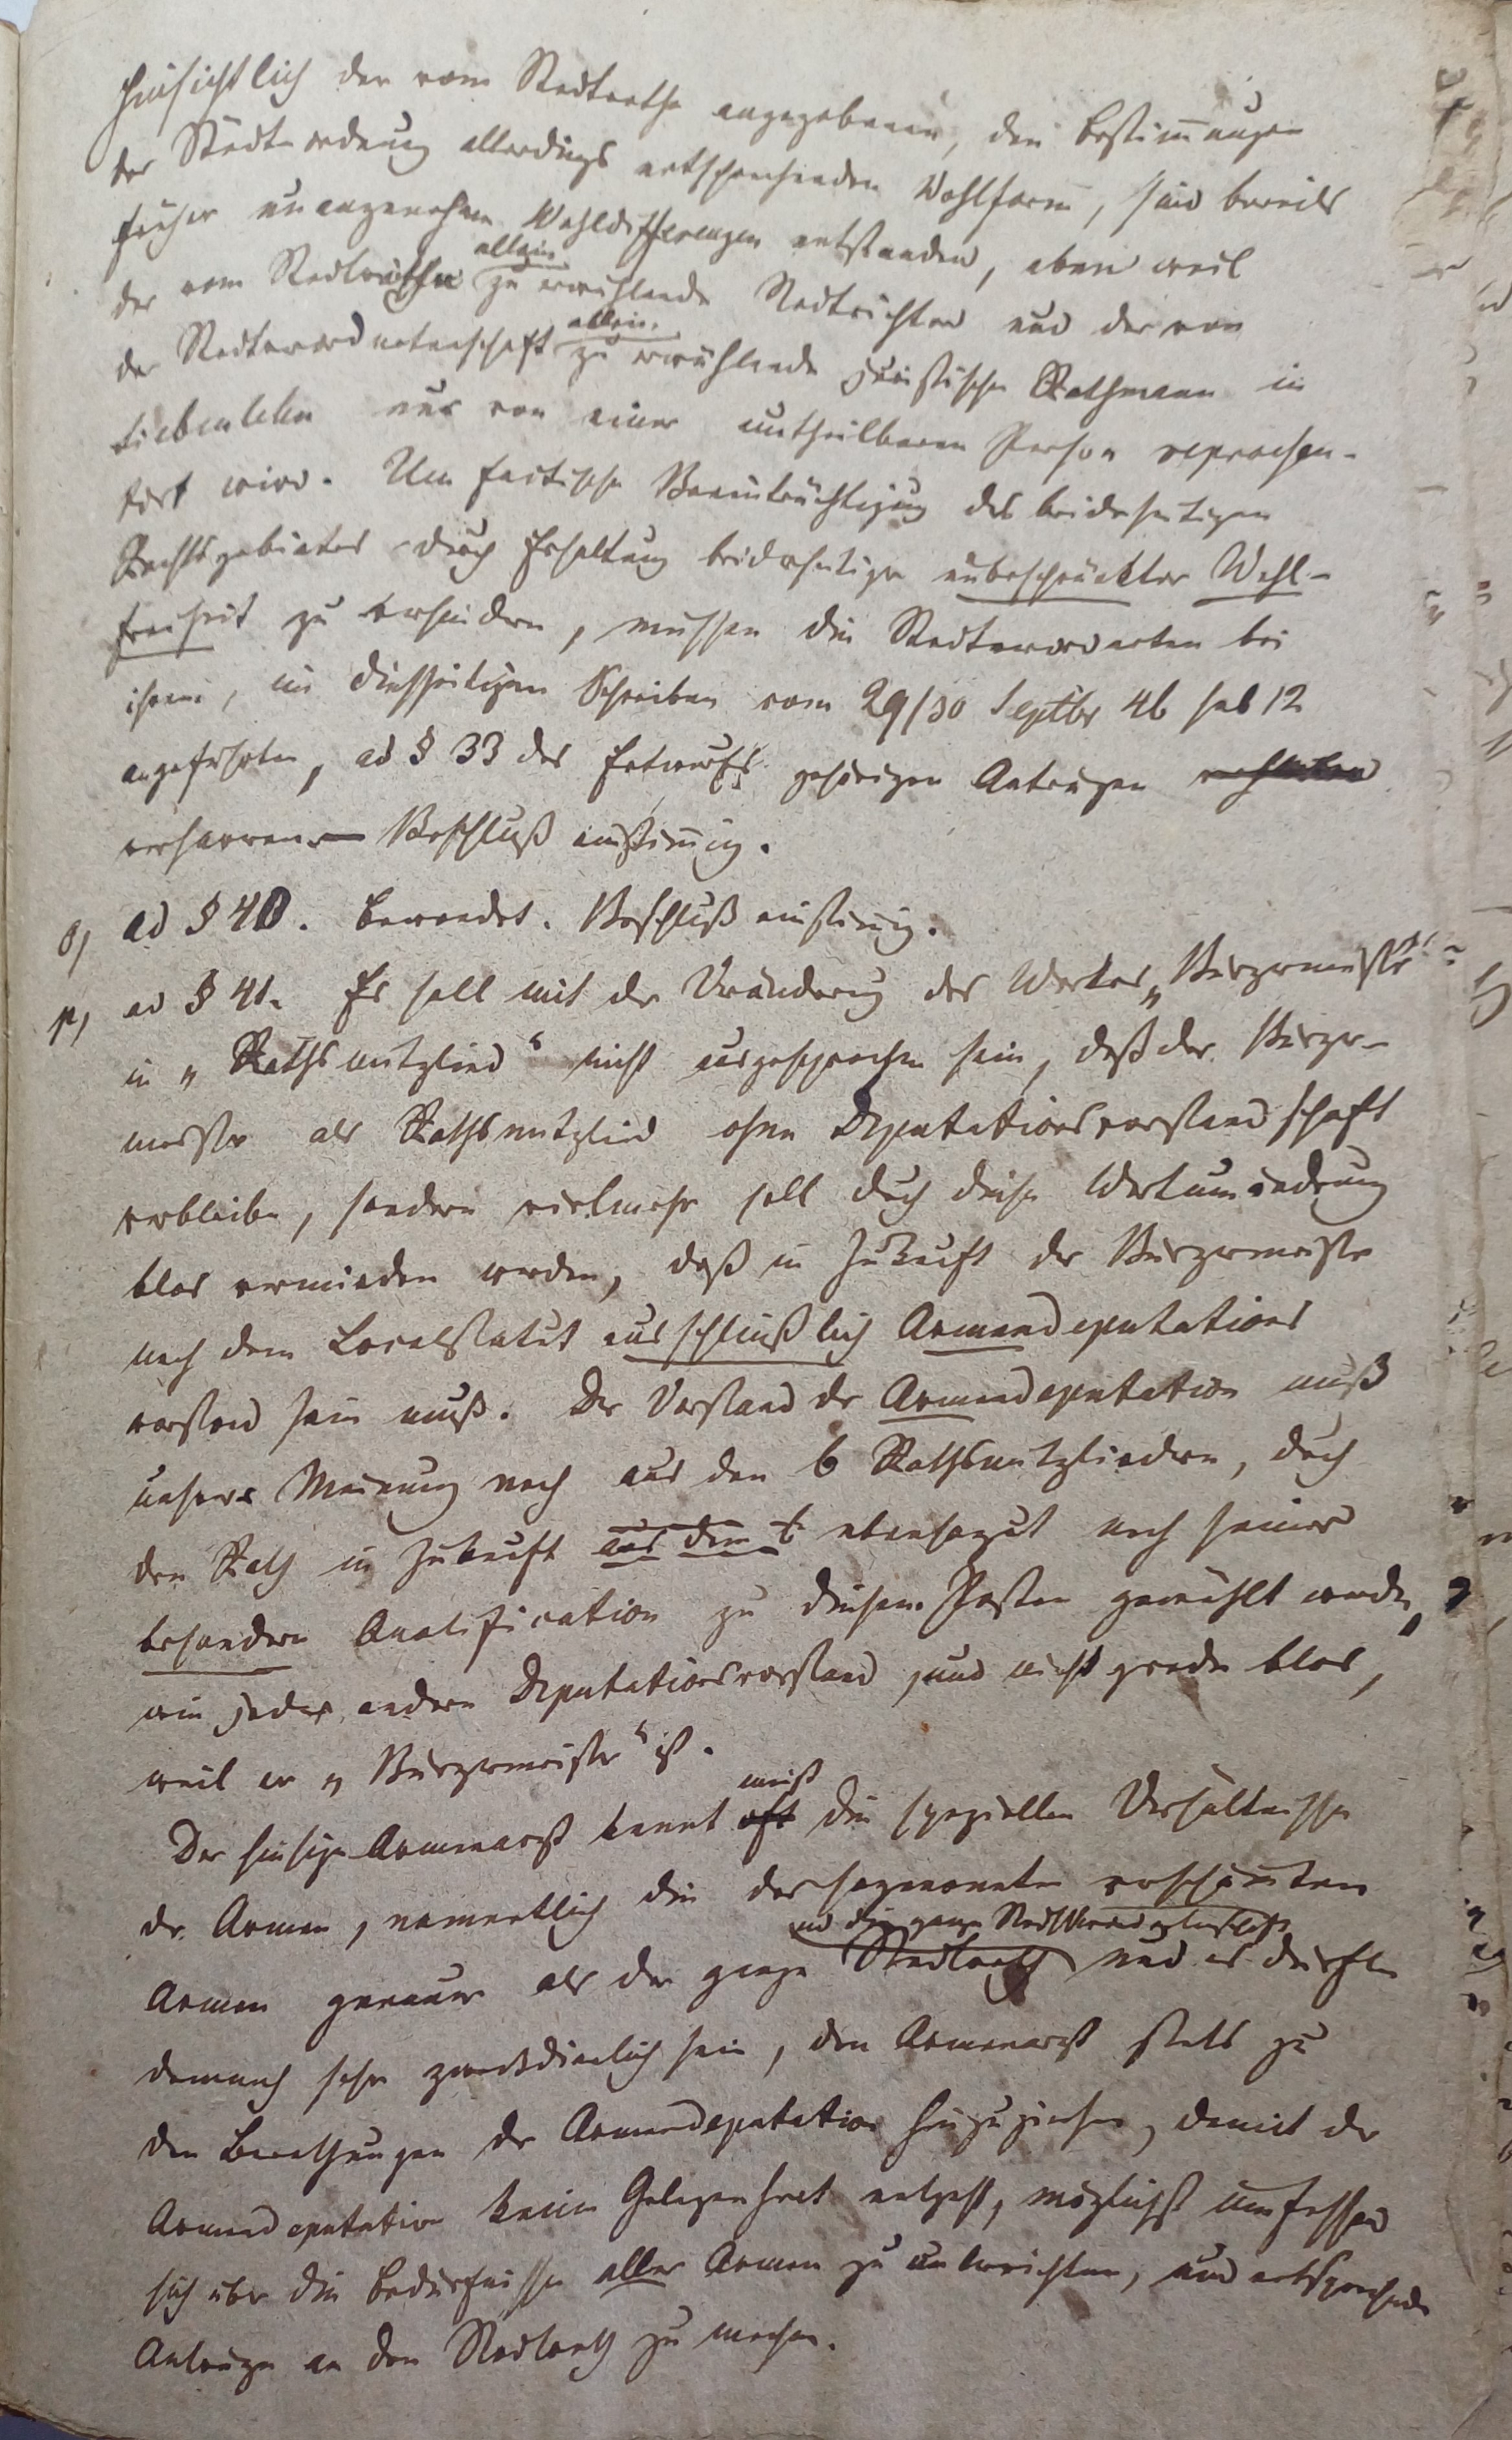 hinsichtlich der vom Stadtrathe angegebenen, den Bestimmungen
der Städteordnung allerdings entsprechenden Wahlform, sind bereits
früher unangenehme Wahldifferenzen entstanden, eben weil
der vom Stadtrathe allein zu erwählende Stadtrichter und der von
der Stadtverordnetenschaft allein zu erwählende juristische Rathmann in
Siebenlehn nur von einer untheilbaren Person repraesen-
tirt wird. Um factische Beeinträchtigung des beiderseitigen
Rechtsgebietes durch Erhaltung beiderseitiger unbeschränkter Wahl-
freiheit zu verhindern, müssen die Stadtverordneten bei
ihrem, im diesseitigen Schreiben vom 29/30 Septbr 46 sub 12
angeführten, ad § 33 des Entwurfs gehörigen Anträgen
verharren. Beschluß einstimig.
o) ad § 40. Bewendet. Beschluß einstimig.
p) ad § 41. Es soll mit der Veränderung des Wortes „Bürgermeister“
in „Rathsmitglied“ nicht ausgesprochen sein, daß der Bürger-
meister als Rathsmitglied ohne Deputationsvorstandschaft
verbleibe, sondern vielmehr soll durch diese Wortumänderung
blos vermieden werden, daß in Zukunft der Bürgermeister
nach dem Localstatut ausschließlich Armendeputations
vorstand sein muß. Der Vorstand der Armendeputation muß
unserer Meinung nach aus den 6 Rathsmitgliedern, durch
den Rath in Zukunft aus den 6 ebensogut nach seiner
besondern Qualification zu diesem Posten gewählt werden,
wie jeder andere Deputationsvorstand, und nicht grade blos,
weil er „Bürgermeister“ ist.
Der hiesige Armenarzt kennt oft meist die speziellen Verhältnisse
der Armen, namentlich die der sogenannten verschämten
und die ganze Stadtverordnetenschaft
Armen genauer als der ganze Stadtrath und es dürfte
demnach sehr zweckdienlich sein, den Armenarzt stets zu
den Berathungen der Armendeputation hinzuziehen, damit der
Armendeputation keine Gelegenheit entgeht, möglichst umfassend
sich über die Bedürfnisse aller Armen zu unterrichten, und entsprechende
Anträge an den Stadtrath zu machen.